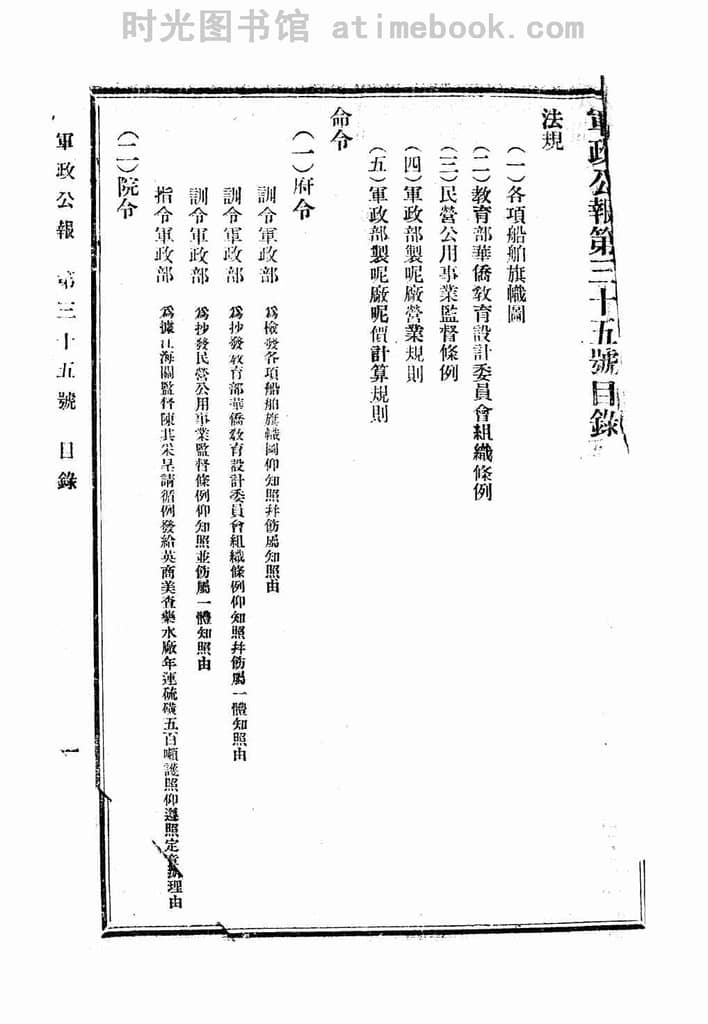 时光图书馆 atimebook.com
軍政公報第三十五號目錄
法規
(一)各項船舶旗幟圖
(二)教育部華僑敎育設計委員會組織條例
(三)民營公用事業監督條例
(四)軍政部製呢廠營業規則
(五)軍政部製呢廠呢價計算規則
命令
(一)府令
訓令軍政部 爲檢發各項船舶旗幟圖仰知照幷飭屬知照由
訓令軍政部 爲抄發敎育部華僑敎育設計委員會組織條例仰知照幷飭屬一體知照由
訓令軍政部 爲抄發民營公用事業監督條例仰知照並飭屬一體知照由
指令軍政部 爲據江海關監督陳其采呈請循例發給英商美查藥水廠年運硫磺五百噸護照仰遵照定章辦理由
(二)院令
軍政公報 第三十五號 目錄 一